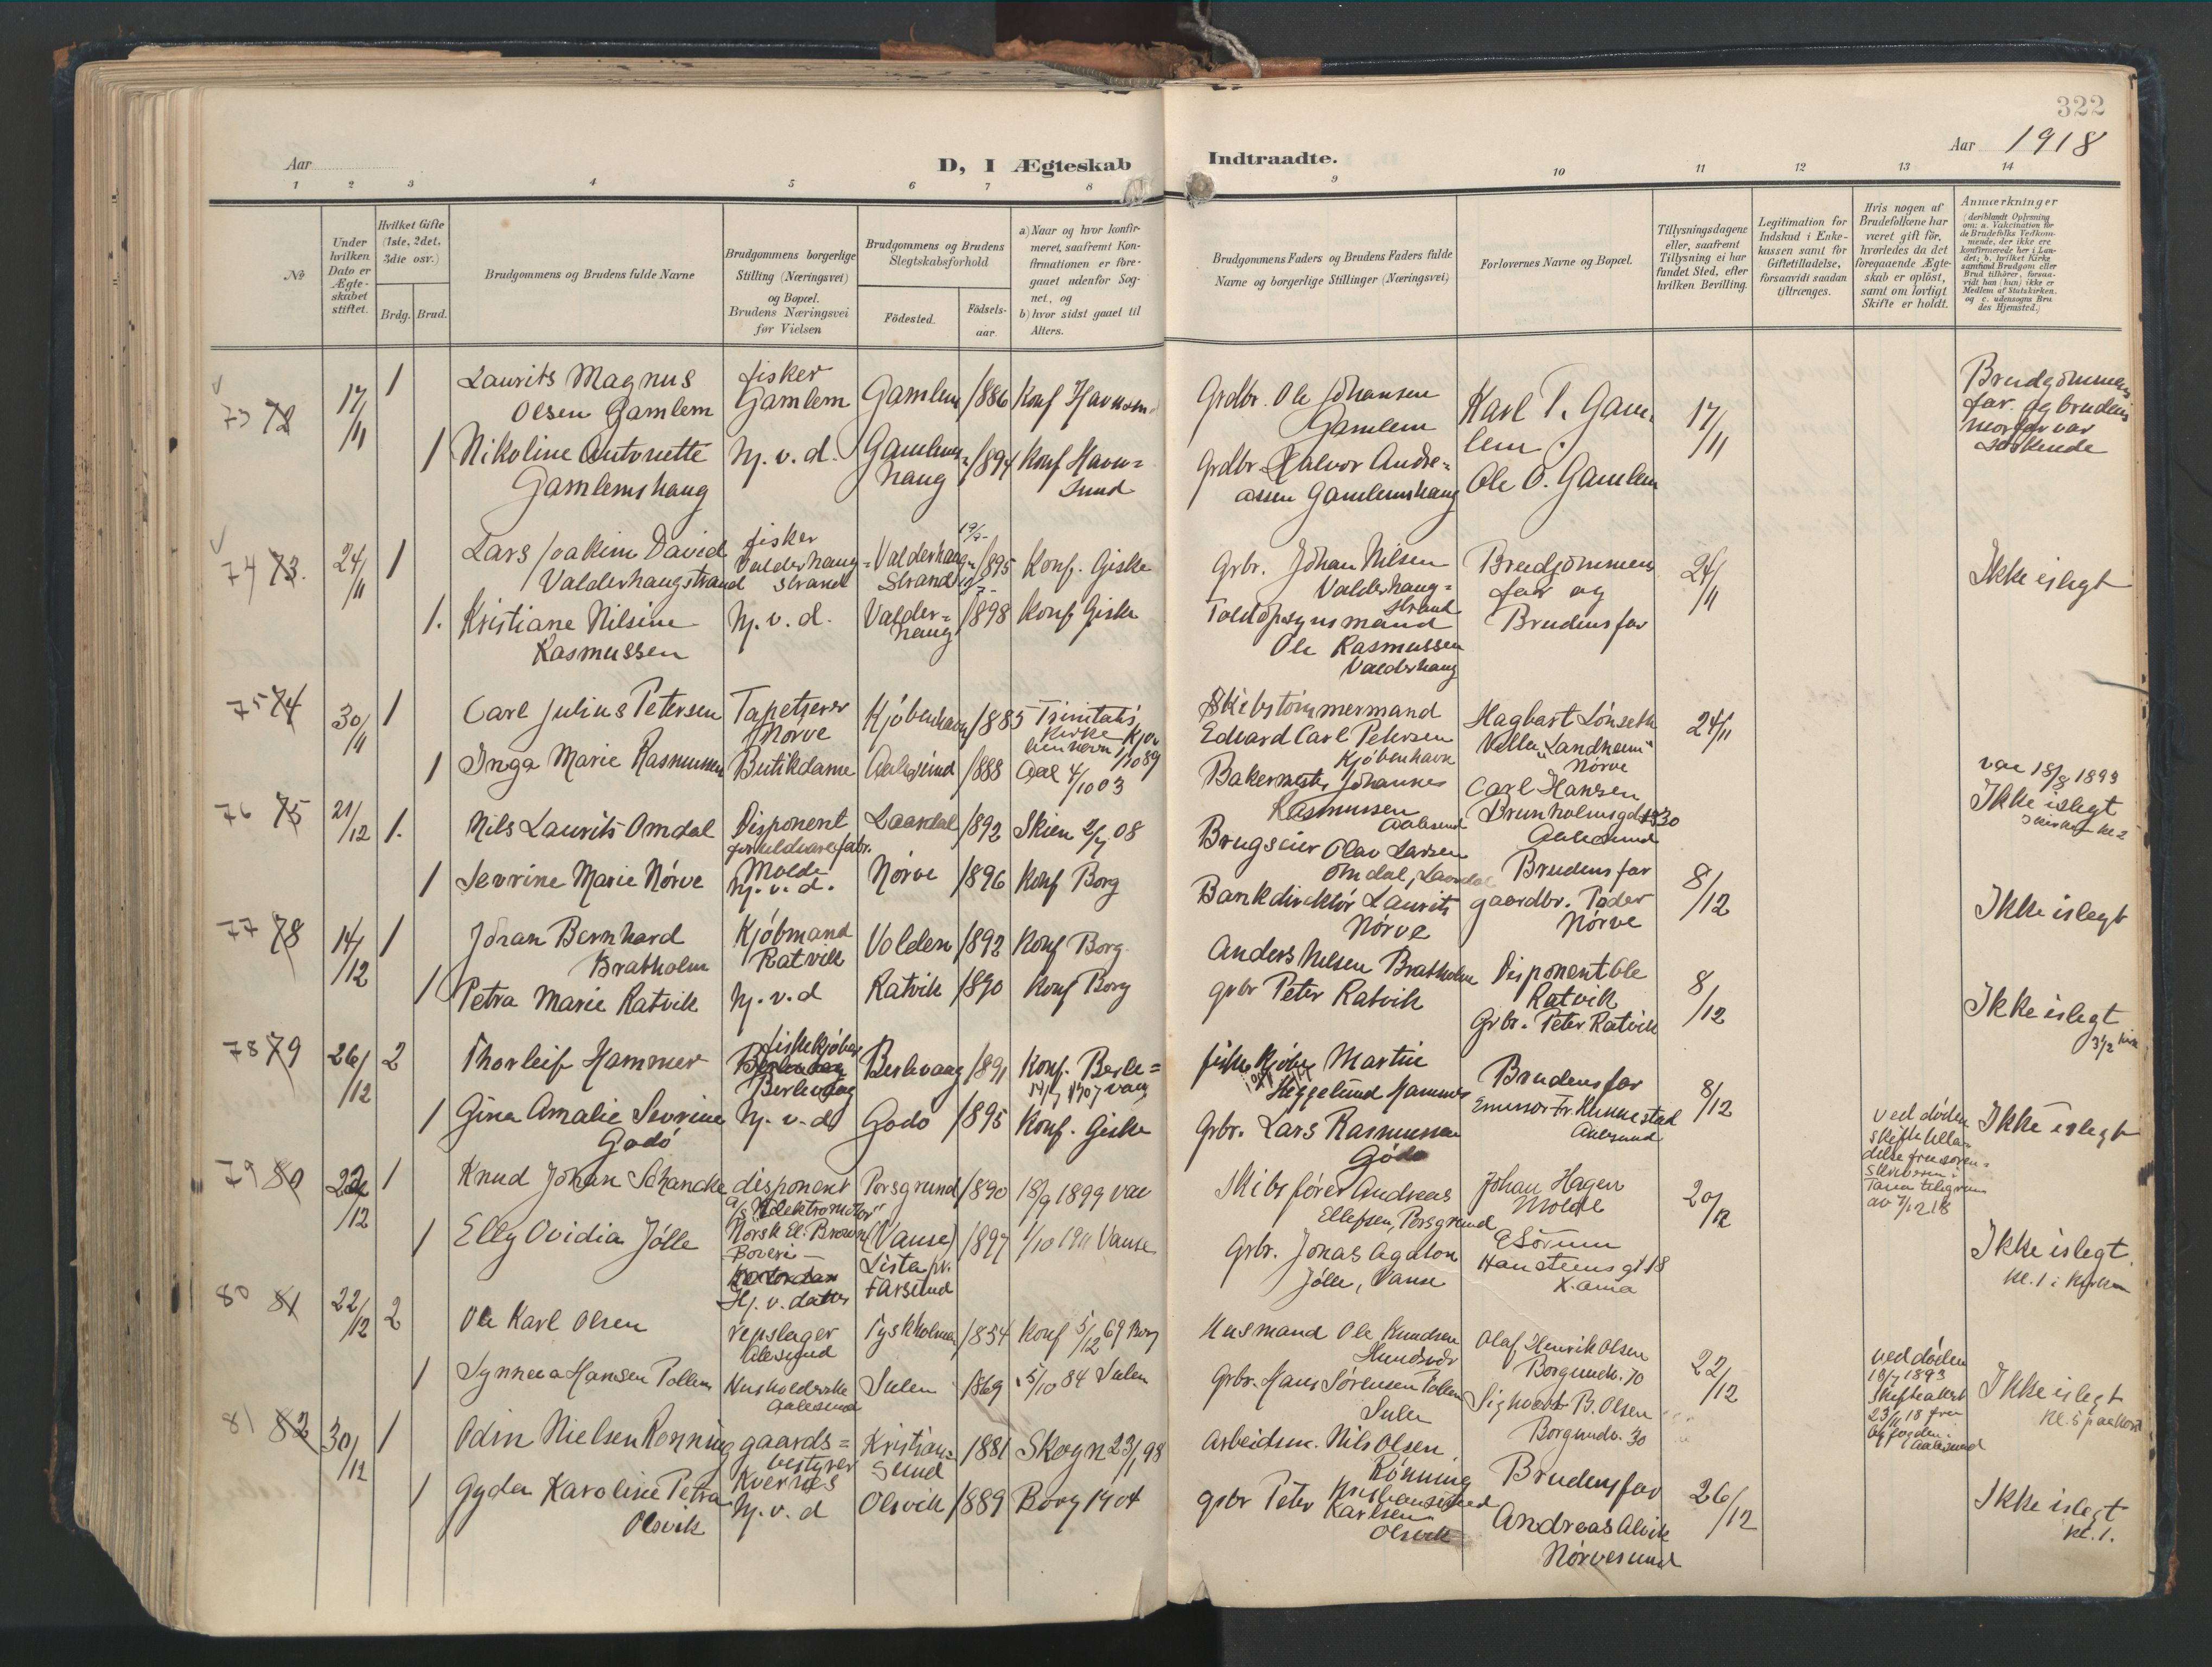 322
Aar 1918
Aar
D, I Ægteskab Indtraadte.
1 2 3 4 5 6 7 8 9 10 11 12 13 14
No
Under hvilken Dato er Ægteskabet stiftet.
Hvilket Gifte (1ste, 2det, 3die osv.)
Brdg. Brud.
Brudgommens og Brudens fulde Navne
Brudgommens borgerlige Stilling (Næringsvei) og Bopæl. Brudens Næringsvei før Vielsen
Brudgommens og Brudens Slegtskabsforhold
Fødested.
Fødselsaar.
a) Naar og hvor konfirmeret, saafremt Konfirmationen er foregaaet udenfor Sognet, og
b) hvor sidst gaaet til Alters.
Brudgommens Faders og Brudens Faders fulde Navne og borgerlige Stillinger (Næringsvei)
Forlovernes Navne og Bopæl.
Tillysningsdagene eller, saafremt Tillysning ei har fundet Sted, efter hvilken Bevilling.
Legitimation for Indskud i Enkekassen samt for Giftetilladelse, forsaavidt saadan tiltrænges.
Hvis nogen af Brudefolkene har været gift før, hvorledes da det foregaaende Ægteskab er opløst, samt om lovligt Skifte er holdt.
Anmærkninger
(deriblandt Oplysning om: a. Vakcination for de Brudefolks Vedkommende, der ikke ere konfirmerede her i Landet; b. hvilket Kirkesamfund Brudgom eller Brud tilhører, forsaavidt han (hun) ikke er Medlem af Statskirken. og c. udensogns Brudes Hjemsted.)
73 72 17/11 1 Laurits Magnus Olsen Gamlem fisker Gamlem Gamlem 1886 Konf Havnsund Grdbr. Ole Johansen Gamlem Karl P. Gamlem. 17/11 Brudgommens far og brudens morfar var søskende
1 Nikoline Antonette Gamlemshaug hj. v. d. Gamlemshaug 1894 Konf Havnsund Grdbr. Halvor Andreassen Gamlemshaug Ole O. Gamlem
74 73. 24/11 1 Lars Joakim David Valderhaugstrand fisker Valderhaugstrand Valderhaugstrand 1895 Konf. Giske Grbr. Johan Nilsen Valderhaugstrand Brudgommens far og 24/11 Ikke i slegt
1. Kristiane Nilsine Rasmussen hj. v. d. Valderhaug 1898 Konf Giske Toldopsynsmand Ole Rasmussen Valderhaug Brudens far
75 74 30/11 1 Carl Julius Petersen Tapetserer Nørve Kjøbenhavn 1885 Trinitatis Kirke Skibstømmermand Edvard Carl Petersen Kjøbenhavn Hagbart Lønseth Villa "Landheim" Nørve 24/11
1 Inga Marie Rasmussen Butikdame Aalesund 1888 Aal 4/10 03 Bakermester Johannes Rasmussen Aalesund Carl Hansen Aalesund Ikke i slegt
76 75 21/12 1. Nils Laurits Omdal Disponent Molde Laardal 1892 Skien 2/7 08 Brugseier Olav Larsen Omdal, Laardal Brudens far 8/12
1 Sevrine Marie Nørve hj. v. d. Nørve 1896 Konf Borg Bankdirektør Laurits Nørve gaardbr. Peder Nørve Ikke i slegt
77 78 14/12 1 Johan Bernhard Bratholm Kjøbmand Ratvik Volden 1892 Konf Borg Anders Nilsen Bratholm Disponent Ole Ratvik 8/12
1 Petra Marie Ratvik hj. v. d Ratvik 1890 Konf Borg grbr Peter Ratvik Grbr. Peter Ratvik Ikke i slegt
78 79 26/12 2 Thorleif Hammer fiskekjøber Berlevaag Berlevaag 1891 Konf. Berlevaag fiskekjøber Martin Heggelund Hammer Brudens far 8/12 ved døden
1 Gina Amalie Sevrine Godø hj. v. d Godø 1895 Konf. Giske Grbr. Lars Rasmussen Godø Aalesund Ikke i slegt
79 80 22/12 1 Knud Johan Schancke disponent a/s "Elektromotor" Norsk El. Brown Boveri Porsgrund 1890 18/9 1899 Skibsfører Andreas Ellefsen, Porsgrund Johan Hagen Molde 20/12
1 Elly Ovidia Jølle Hj. v. datter (Vanse) Lista pr. Farsund 1897 1/10 1911 Vanse Grbr. Jonas Agaton Jølle, Vanse E Sørum Hansteensgt 18 X.ania Ikke i slegt.
80 81 22/12 2 Ole Karl Olsen repslager Aalesund Tyskholmen 1854 Konf 5/12 69 Borg Husmand Ole Knudsen Olaf Henrik Olsen Borgundv. 70 22/12 ved døden 10/7 1893 Skifteattest 23/11 18 fra Byfogden i Aalesund
1 Synneva Hansen Pollen Husholderske Aalesund Sulen 1869 5/10 84 Sulen Grbr. Hans Sørensen Pollen Sulen Sigvart B. Olsen Borgundv. 30 Ikke i slegt
81 82 30/12 1 Odin Nielsen Rønning gaardsbestyrer Kvernes Kristiansund 1881 Skogn 23/1 98 Arbeidsm. Nils Olsen Rønning Brudens far 26/12
1 Gyda Karoline Petra Olsvik hj. v. d Olsvik 1889 Borg 1904 grbr Peter Karlsen Olsvik Andreas Alvik Nørvesund Ikke i slegt kl. 1.